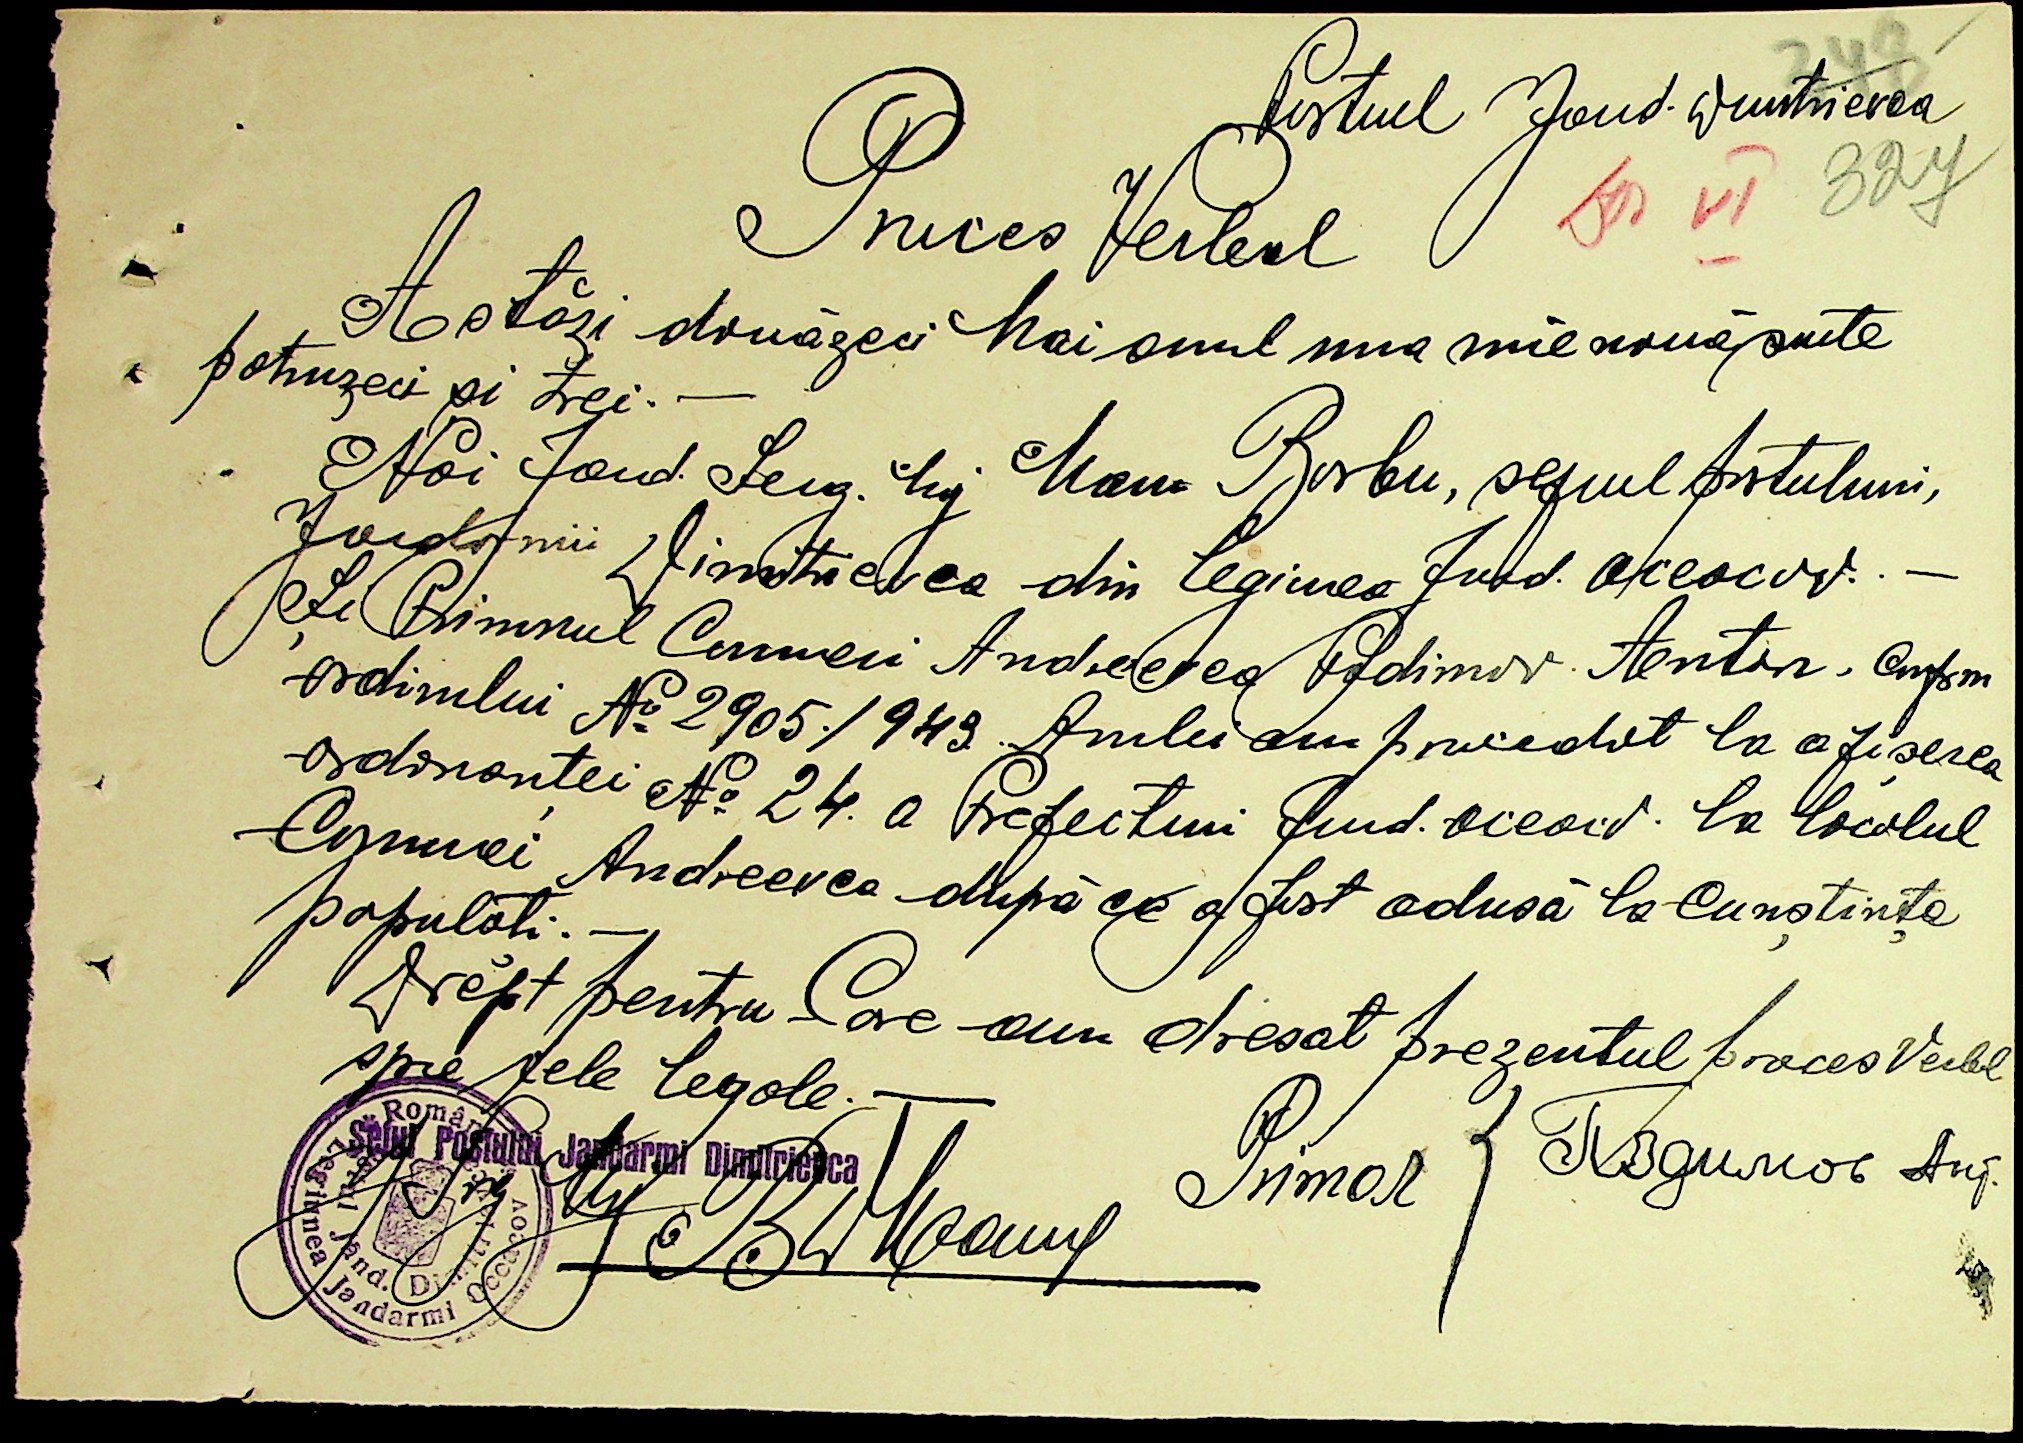 248
Postul Jand. Dimitrievca
Dos VI 327
Proces Verbal
Astăzi douăzeci Mai anul una mie nouă sute
patruzeci și trei. —
Noi Jand. Serg. Maur Barbu, șeful postului,
Jandarmi Dimitrievca din Legiunea Jand. Oceacov. —
Și Primarul Comunei Andreevca Padimov Anton, Conform
ordinului No 2905/943. Amlei am procedat la afișerea
ordonanței No 24. a Prefecturi Jud. Oceacov. la localul
Comunei Andreevca după ce a fost adusă la cunștința
populăti. —
Drept pentru Care am dresat prezentul proces Verbal
spre cele legale. —
Șeful Postului Jandarmi Dimitrievca
România
Legiunea Jandarmi Oceacov
Postul Jand. Dimitrievca
Primar } Падимов Ант.